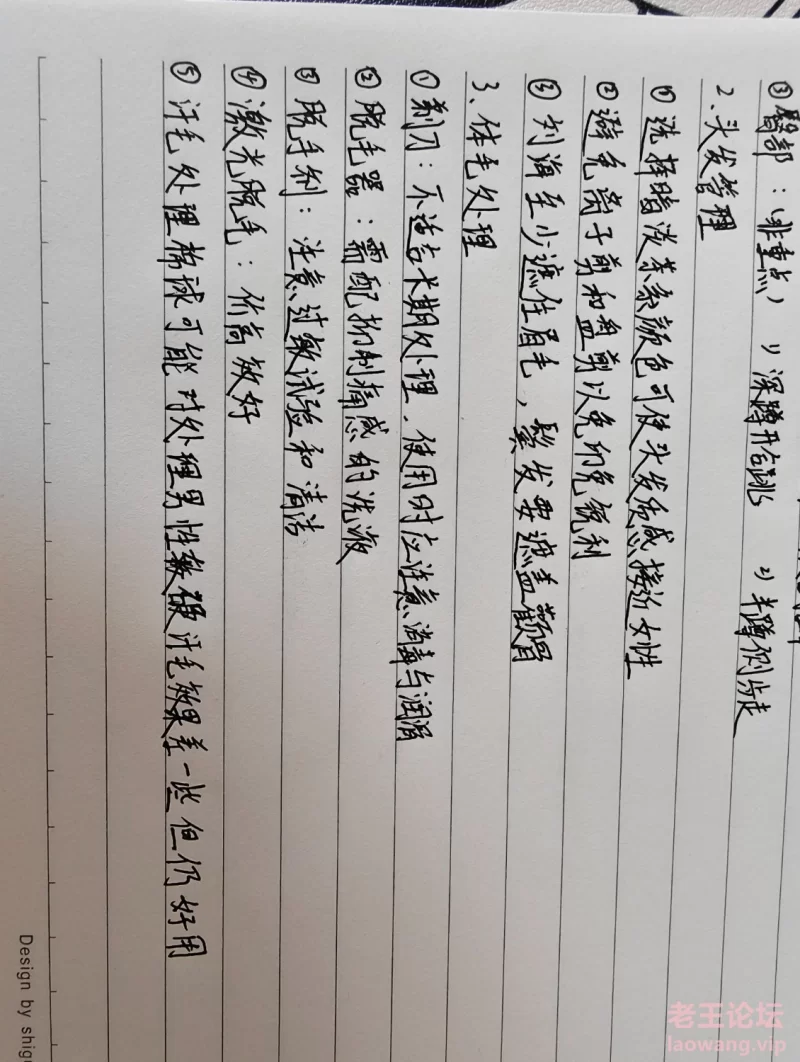 ③臀部：（非重点） 1）深蹲开合跳 2）半蹲侧步走
2、头发管理
①选择暗淡茶系颜色可使头发质感接近女性
②避免离子剪和盘剪以免切免锐利
③刘海至少遮住眉毛，鬓发要遮盖颧骨
3、体毛处理
①剃刀：不适合长期处理，使用时应注意消毒与润滑
②脱毛器：需配抑制痛感的洗液
③脱毛剂：注意过敏试验和清洁
④激光脱毛：价高效好
⑤汗毛处理棉球可能对处理男性较硬汗毛效果差一些但仍好用
Design by shigu
老王论坛
laowang.vip